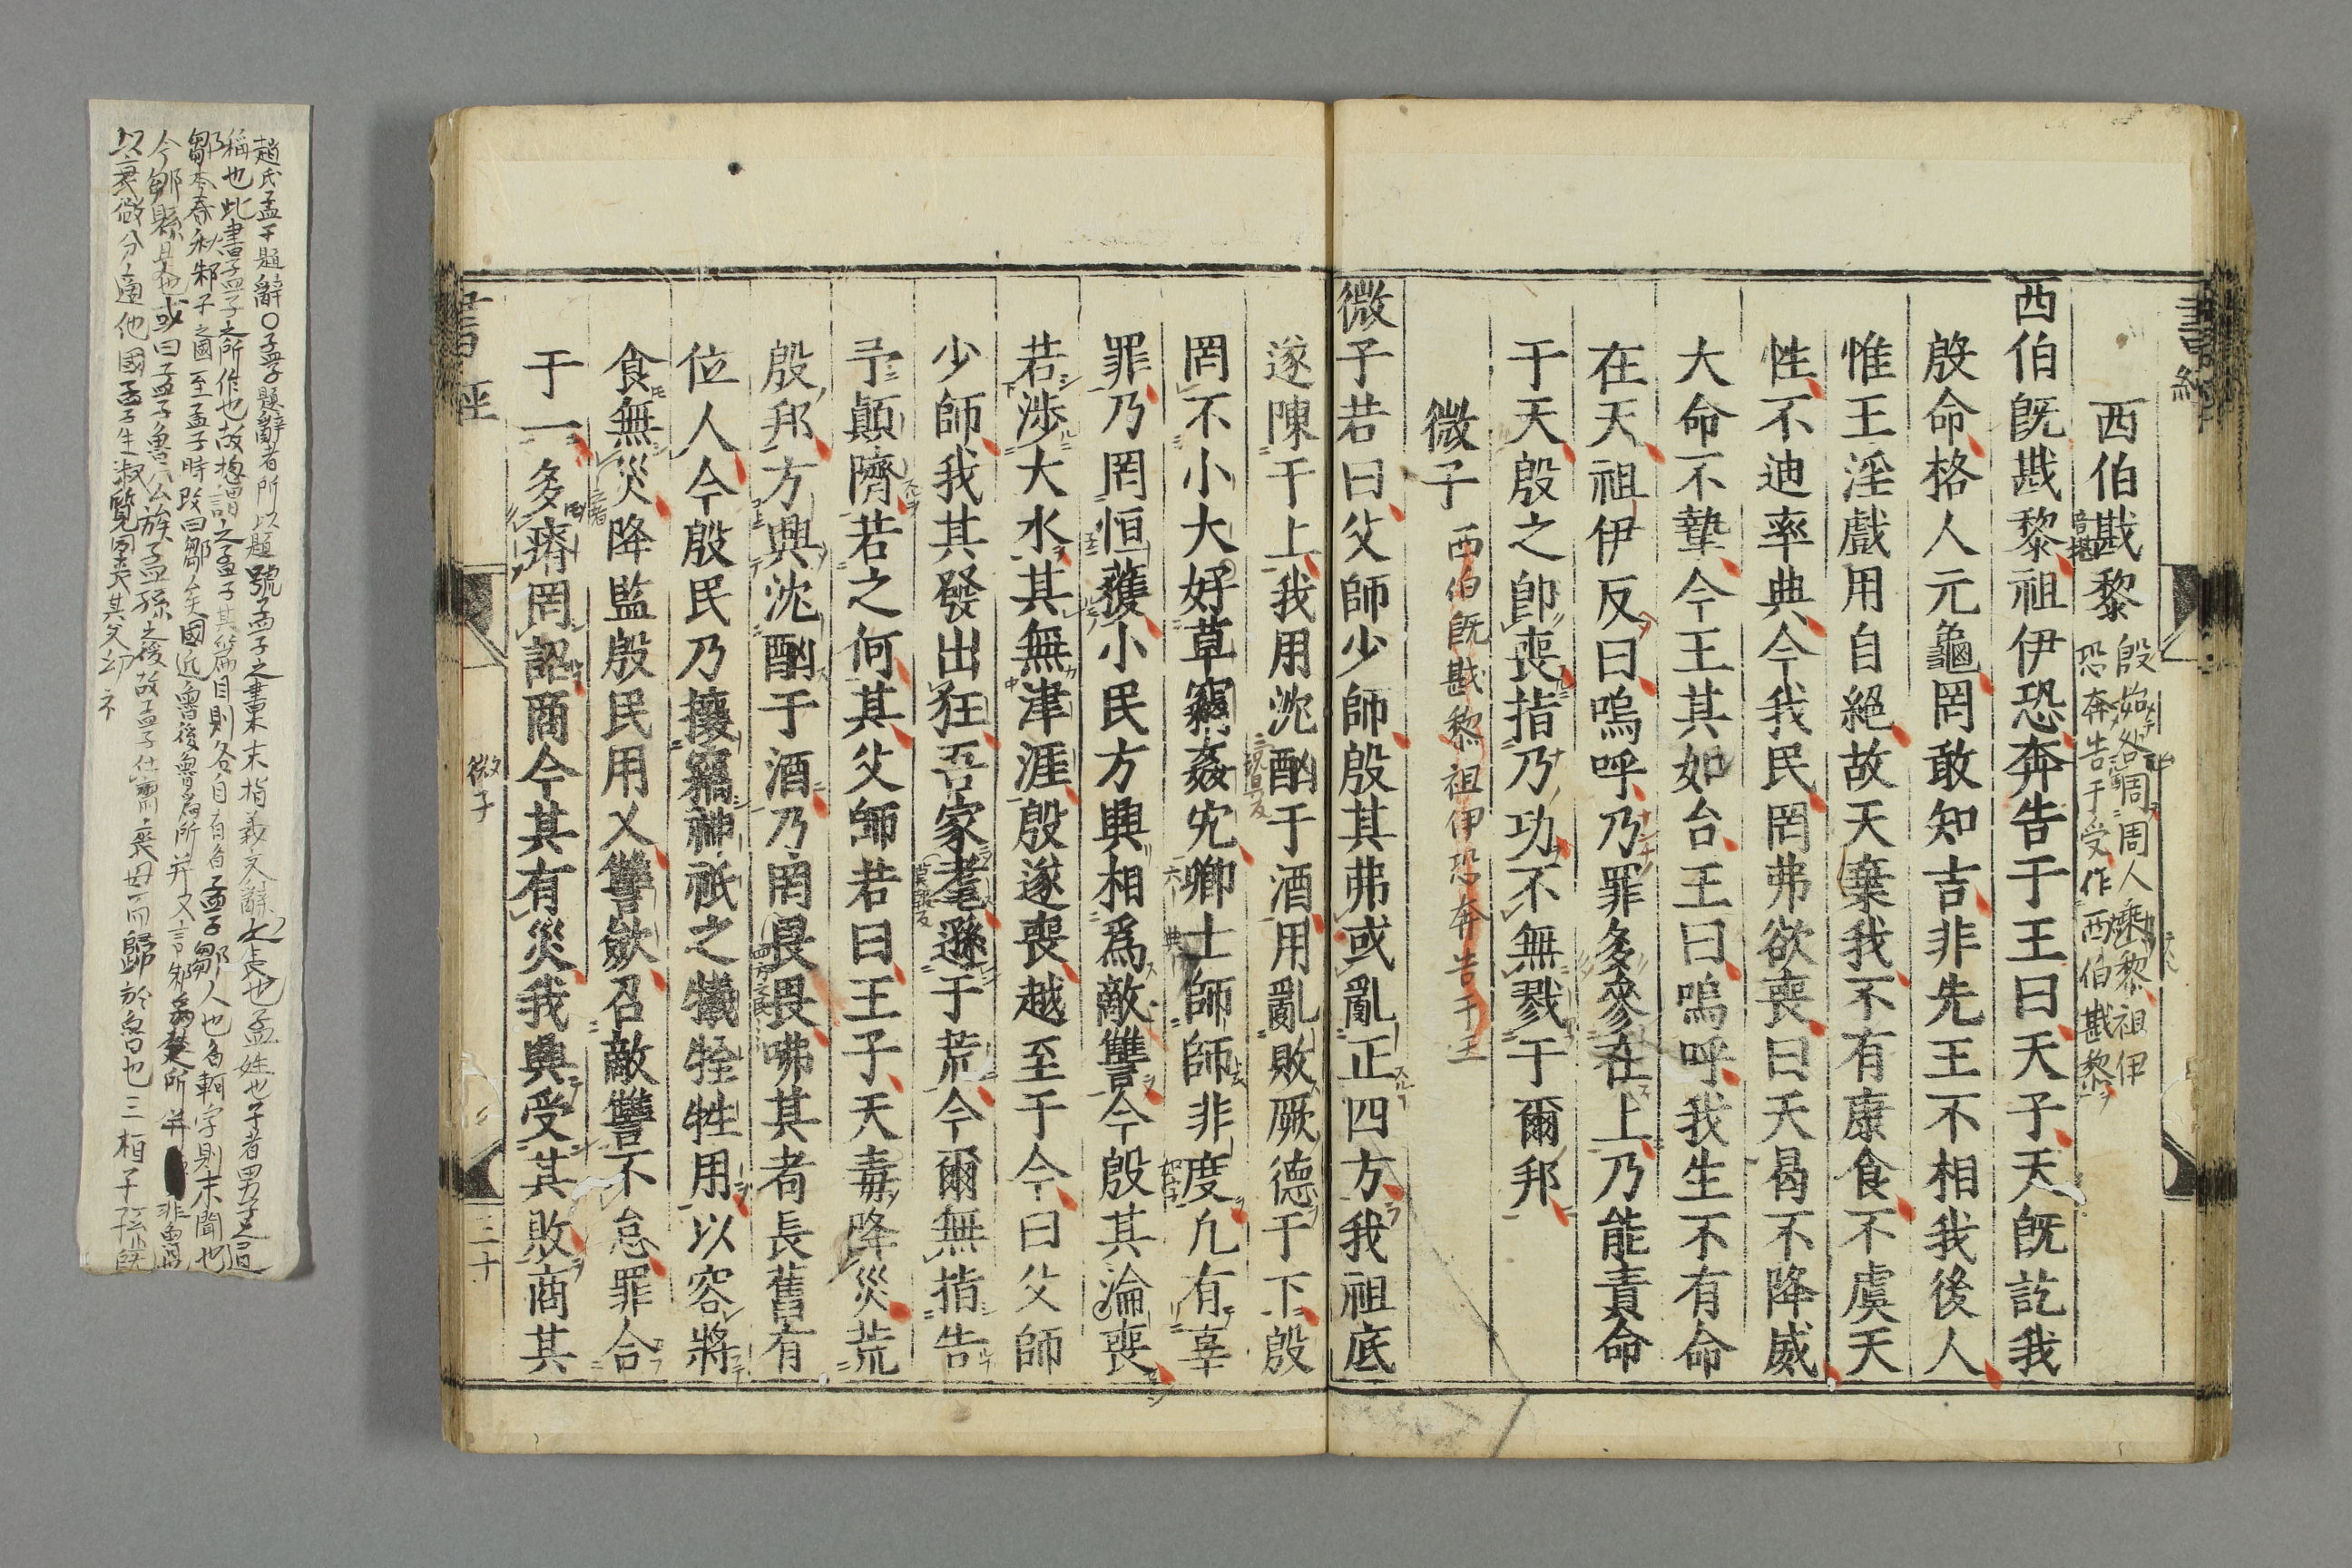 書經
西伯戡黎
殷始咎周周人乘黎祖伊
恐奔告于受作西伯戡黎
音堪
西伯旣戡黎祖伊恐奔告于王曰天子天旣訖我
殷命格人元龜罔敢知吉非先王不相我後人
惟王淫戲用自絕故天棄我不有康食不虞天
性不迪率典今我民罔弗欲喪曰天曷不降威
大命不摯今王其如台王曰嗚呼我生不有命
在天祖伊反曰嗚呼乃罪多參在上乃能責命
于天殷之卽喪指乃功不無戮于爾邦
微子
西伯旣戡黎祖伊恐奔告于王
微子若曰父師少師殷其弗或亂正四方我祖底
遂陳于上我用沈酗于酒用亂敗厥德于下殷
罔不小大好草竊姦宄卿士師師非度凢有辜
罪乃罔恒獲小民方興相爲敵讐今殷其淪喪
若涉大水其無津涯殷遂喪越至于今曰父師
少師我其發出狂吾家耄遜于荒今爾無指告
予顚隮若之何其父師若曰王子天毒降災荒
殷邦方興沈酗于酒乃罔畏畏咈其耇長舊有
位人今殷民乃攘竊神祇之犧牷牲用以容將
食無災降監殷民用乂讐斂召敵讐不怠罪合
于一多瘠罔詔商今其有災我興受其敗商其
書經
微子
三十
趙氏孟子題辭○孟子題辭者所以題號孟子之書本末指義文辭之表也孟姓也子者男子之通
稱也此書孟子之所作也故揔謂之孟子其篇目則各自有名孟子鄒人也名軻字則未聞也
鄒本春秋邾子之國至孟子時改曰鄒矣國近魯後魯爲所并又言邾爲楚所并非魯
今鄒縣是也或曰孟子魯公族孟孫之後故孟子仕齊喪母而歸於魯也三桓子孫旣
以衰微分適他國孟子生淑質夙喪其父幼